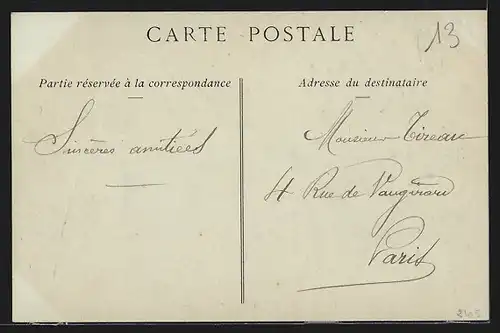 CARTE POSTALE
13
Partie réservée à la correspondance
Adresse du destinataire
Sincères amitiés
Monsieur
4 Rue de Vaugirard
Paris